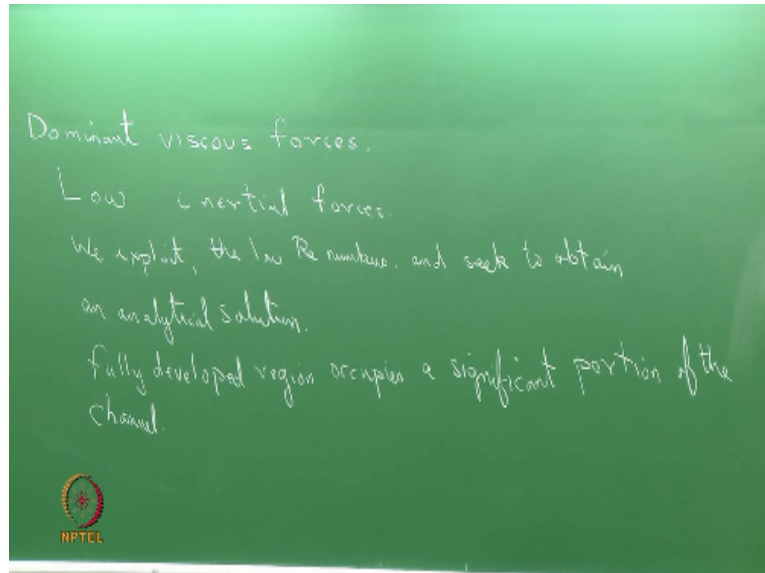 Dominant viscous forces.
Low inertial forces.
We exploit, the low Re numbers, and seek to obtain
an analytical solution.
fully developed region occupies a significant portion of the
channel.
NPTEL